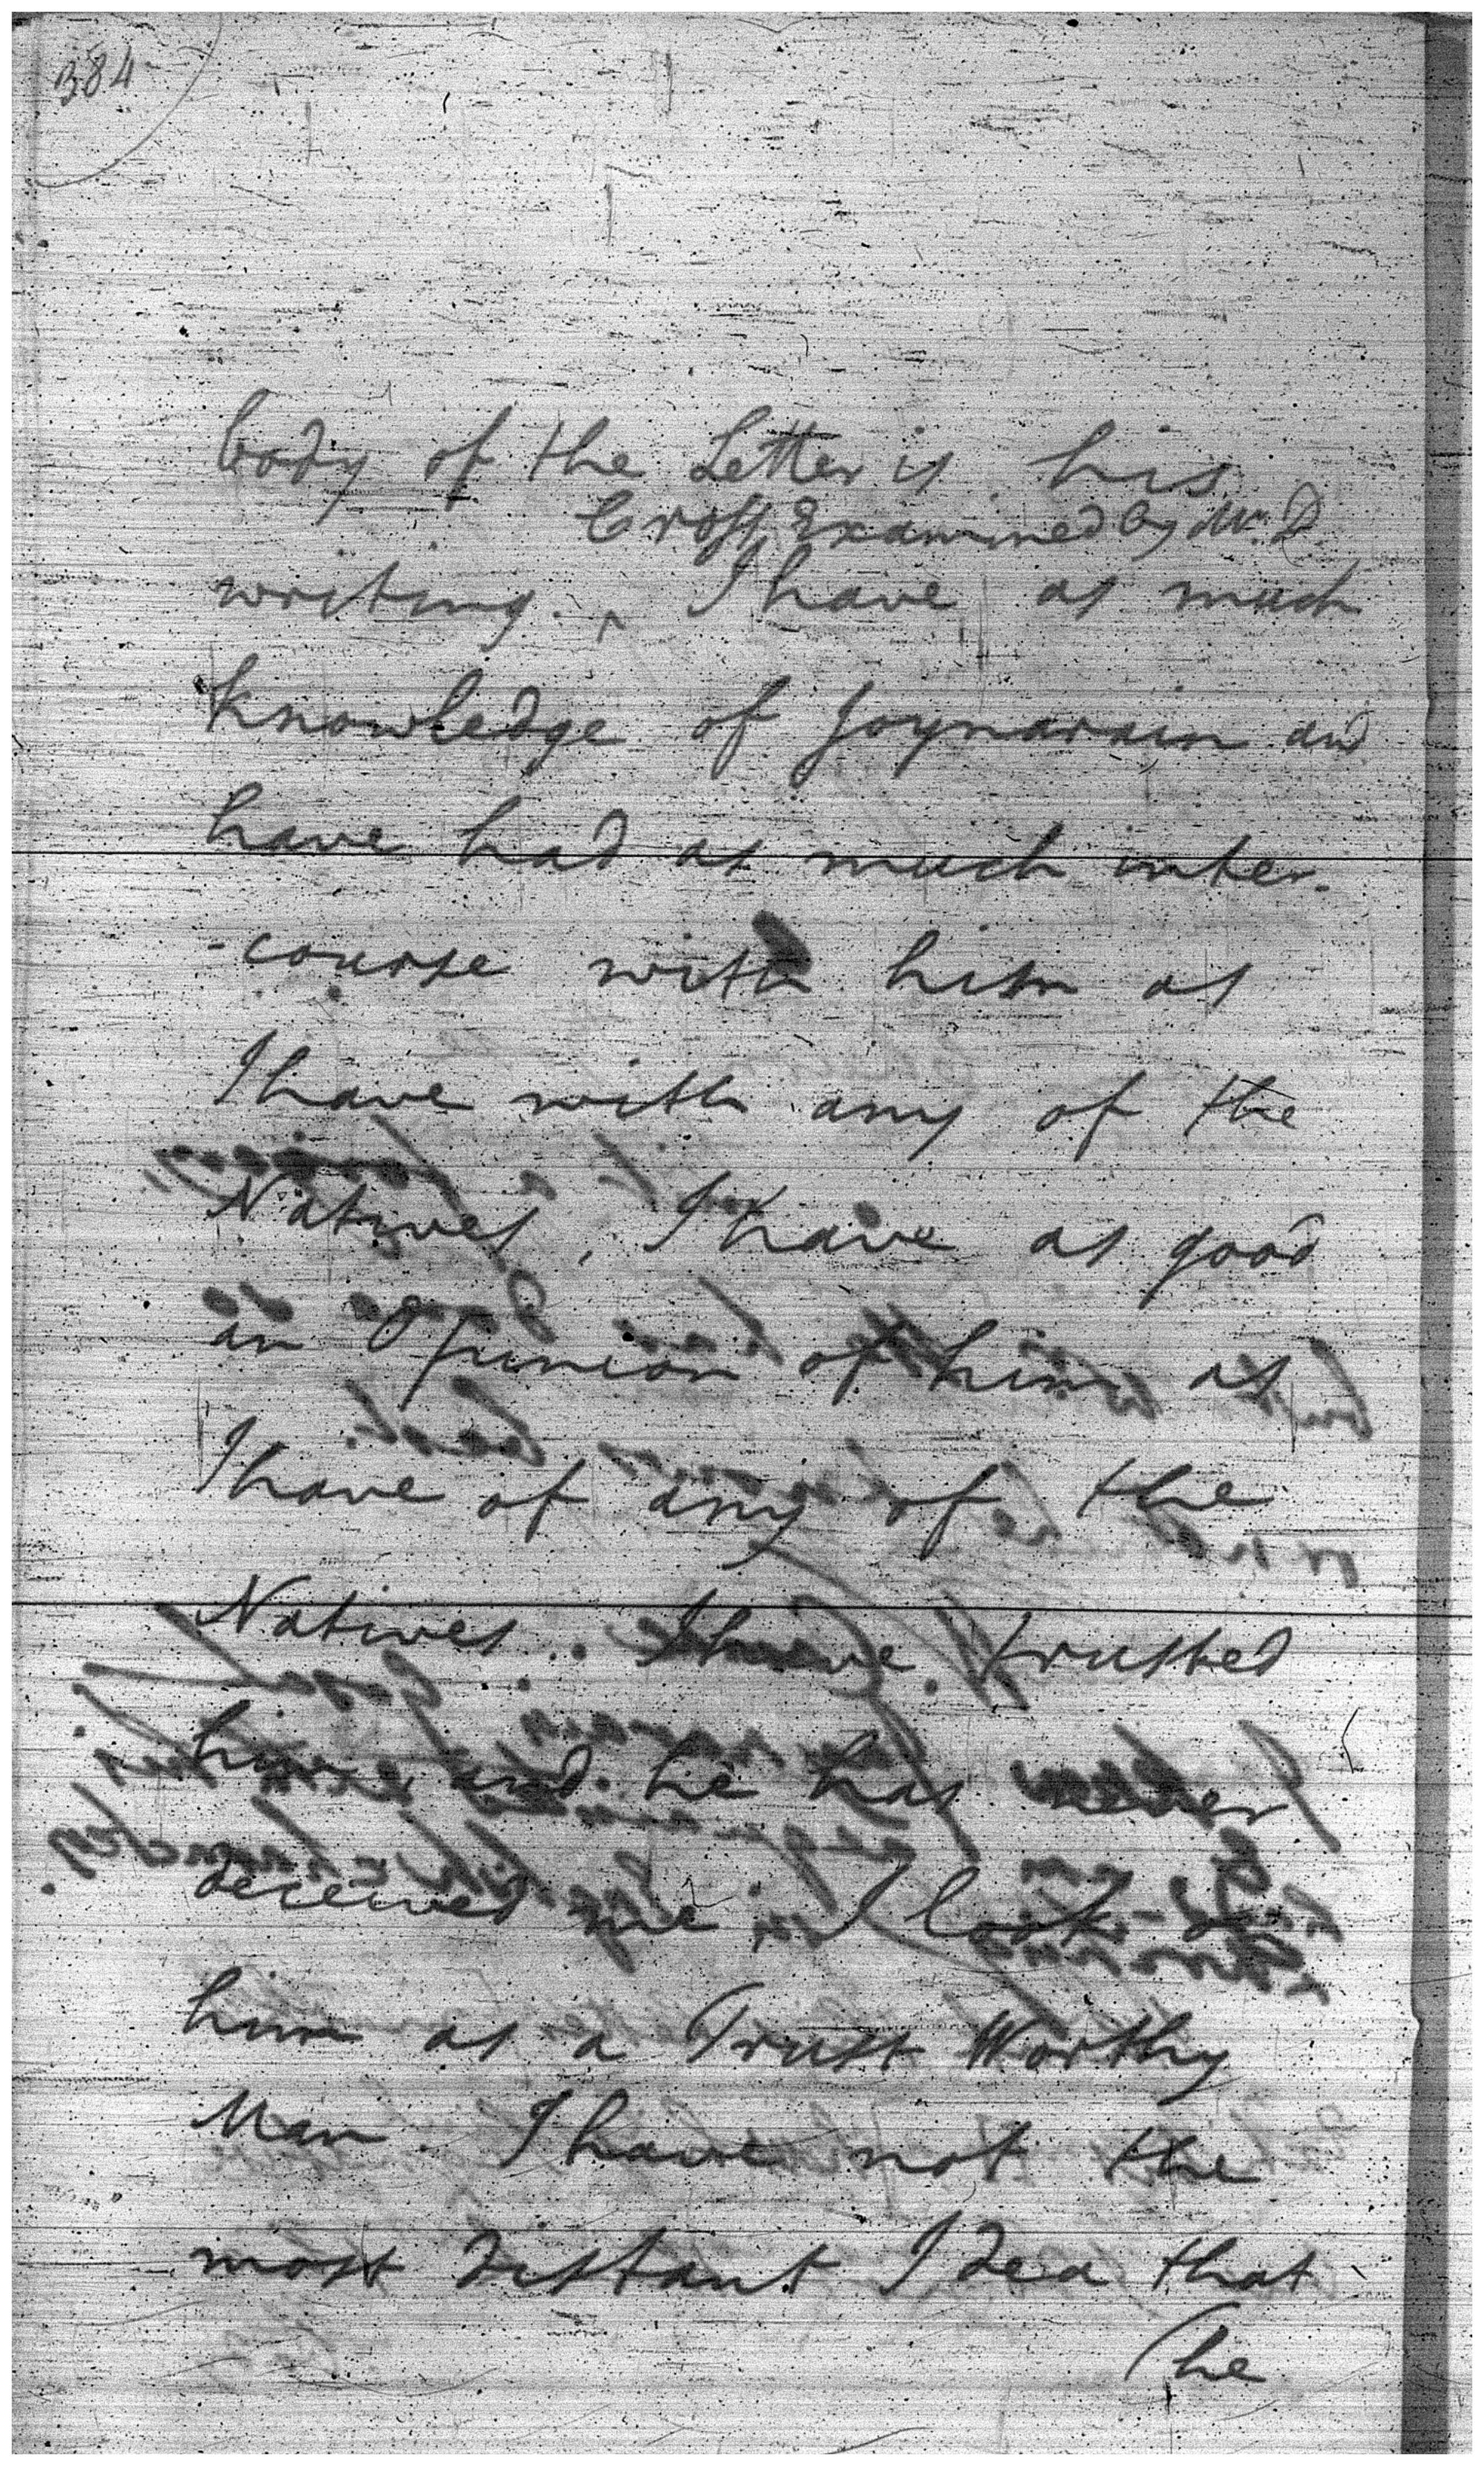 384
body of the Letter is his
Cross Examined by Mr. D.
writing. ^ I have as much
knowledge of Joynarain and
have had as much inter-
-course with him as
I have with any of the
Natives, I have as good
an Opinion of him as
I have of any of the
Natives. I have trusted
him and he has never
deceived me, I look on
him as a Trust Worthy
Man. I have not the
most distant Idea that
he